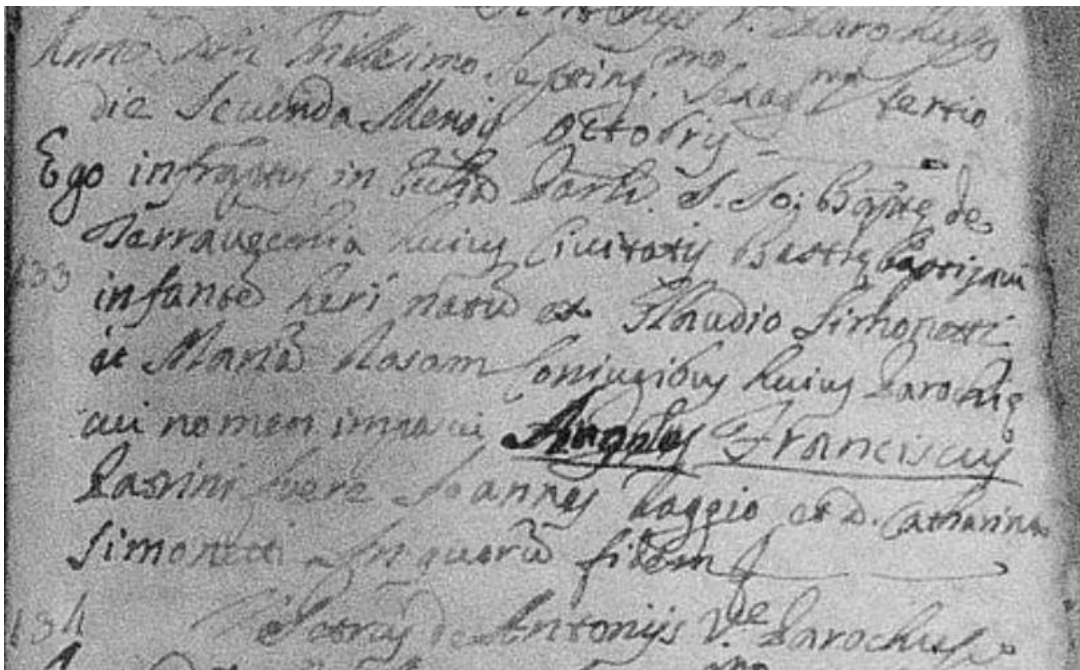 V. Parochus
Anno Dñi Millesimo Septing.mo Sexag.mo tertio
die Secunda Mensis Octobris
Ego infrascriptus in Eccl̃ia Par̃li S. Jo: Bap̃tę de
Terravecchia huius Civitatis Bastię baptizavi
133
infantē heri natū ex Claudio Simonetti
et Mariā Rosam Coniugibus huius Parochię
cui nomen imposui Angelus Franciscus
Patrini fuere Joannes Raggio et D. Catharina
Simonetti In quorū fidem
134
Petrus de Antonijs V.e Parochus